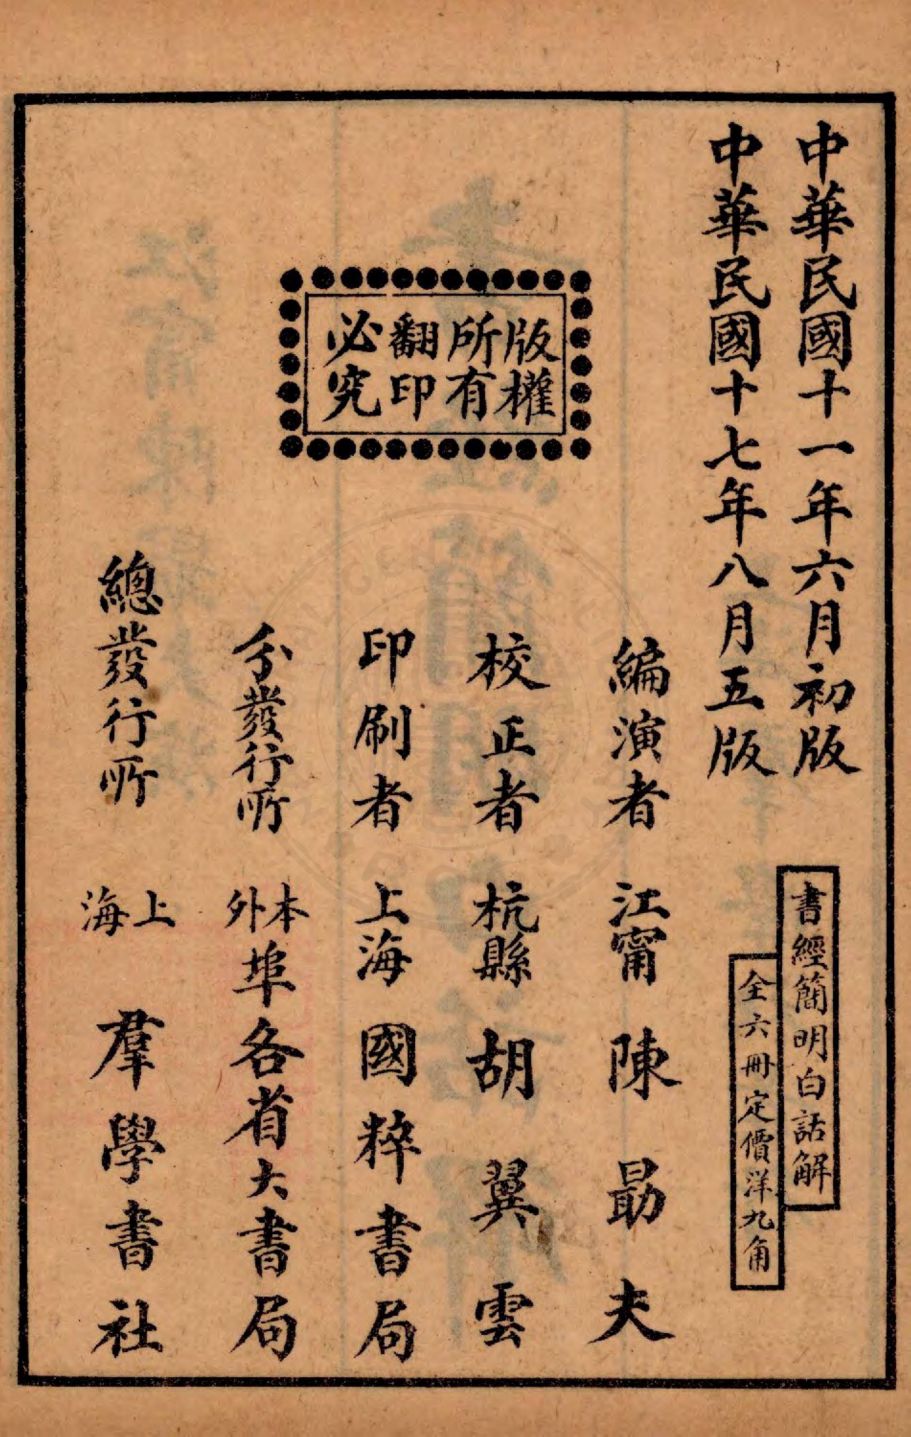 中華民國十一年六月初版
中華民國十七年八月五版
書經簡明白話解
全六冊定價洋九角
版權
所有
翻印
必究
編演者 江甯 陳勗夫
校正者 杭縣 胡翼雲
印刷者 上海國粹書局
分發行所 本外埠各省大書局
總發行所 上海 羣學書社